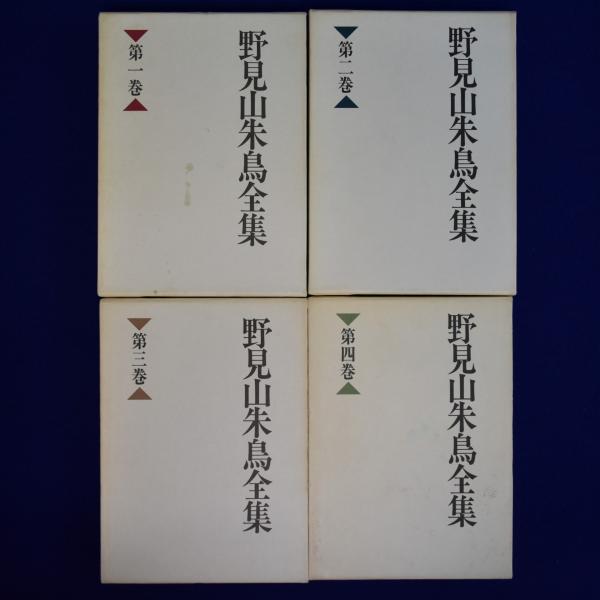 野見山朱鳥全集
第一巻
野見山朱鳥全集
第二巻
野見山朱鳥全集
第三巻
野見山朱鳥全集
第四巻